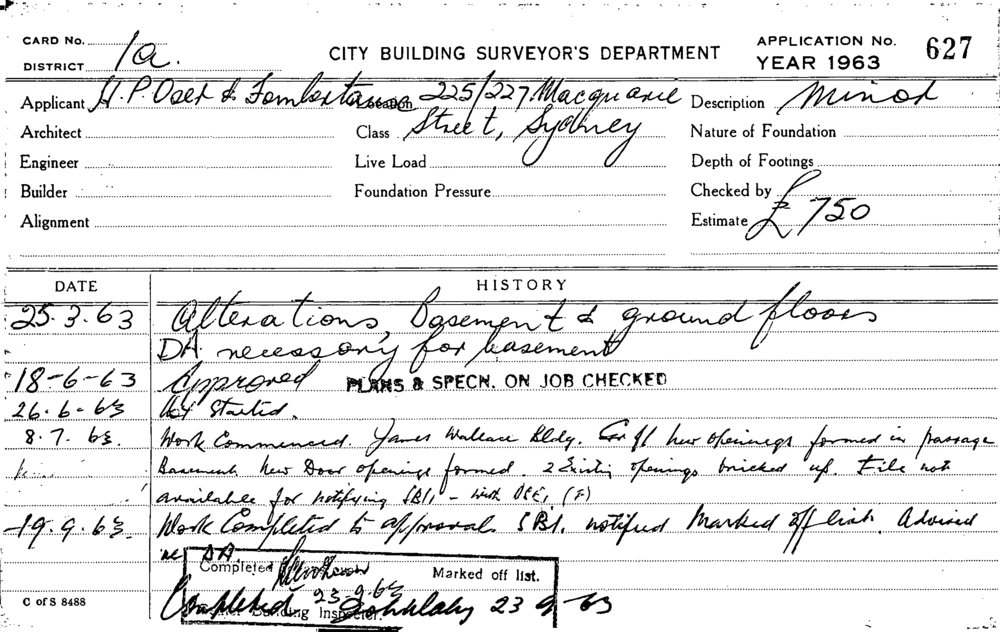 CARD No. 1a
DISTRICT
CITY BUILDING SURVEYOR'S DEPARTMENT
APPLICATION No. 627
YEAR 1963
Applicant H.P. Oser & 225/227 Macquarie
Description Minor
Architect
Class Street, Sydney
Nature of Foundation
Engineer
Live Load
Depth of Footings
Builder
Foundation Pressure
Checked by
Alignment
Estimate £750
DATE HISTORY
25.3.63 Alterations, Basement & ground floors
DA necessary for basement
18-6-63 Approved PLANS & SPECN. ON JOB CHECKED
26.6.63 Not Started.
8.7.63. Work Commenced. James Wallace Bldg. new openings formed in passage
Basement new Door openings formed. 2 Existing openings bricked up. File not
available for notifying SBI,
19.9.63 Work Completed to approval SBI. notified Marked off list. Advised
re DA.
Completed 23-9-63 Marked off list.
Building Inspector.
Completed 23 9-63
C of S 8488